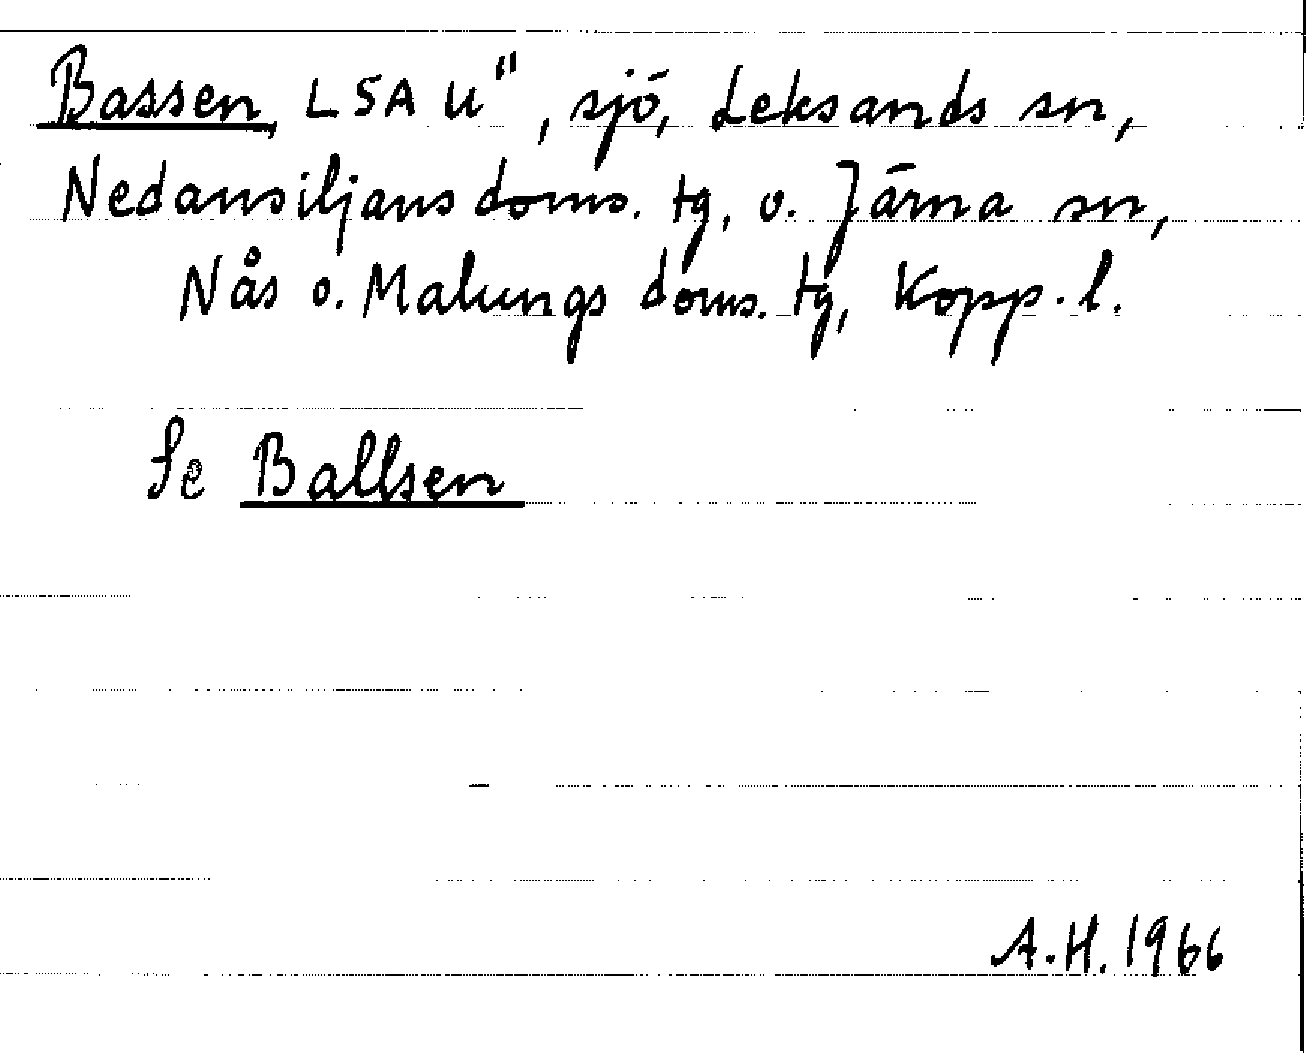 Bassen, LSA U", sjö, Leksands sn,
Nedansiljans doms. tg, o. Järna sn,
Nås o. Malungs doms. tg, Kopp. l.
Se Ballsen
A.H. 1966